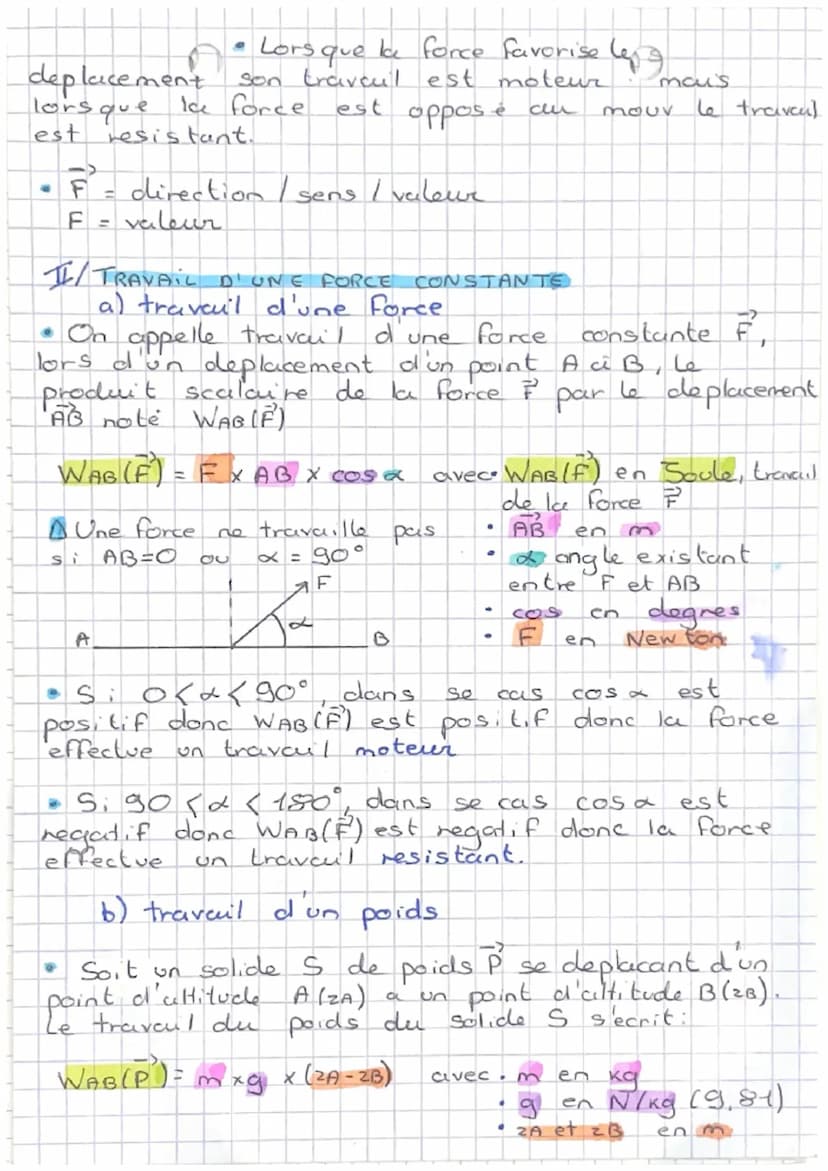 • Lorsque la force favorise le
deplacement son travail est moteur mais
lorsque la force est opposé au mouv le travail
est resistant.
• F⃗ = direction / sens / valeur
F = valeur
II/ TRAVAIL D'UNE FORCE CONSTANTE
a) travail d'une force
• On appelle travail d'une force constante F⃗,
lors d'un deplacement d'un point A à B, le
produit scalaire de la force F⃗ par le deplacement
A⃗B noté WAB(F⃗)
WAB(F⃗) = F x AB x cos α avec • WAB(F⃗) en Joule, travail
de la force F⃗
⚠ Une force ne travaille pas • A⃗B en m
si AB=0 ou α = 90° • α angle existant
entre F et AB
F
α
• cos en degres
A B • F en Newton
• Si 0<α<90°, dans se cas cos α est
positif donc WAB(F⃗) est positif donc la force
effectue un travail moteur
• Si 90<α<180°, dans se cas cos α est
negatif donc WAB(F⃗) est negatif donc la force
effectue un travail resistant.
b) travail d'un poids
• Soit un solide S de poids P⃗ se deplacant d'un
point d'altitude A(zA) a un point d'altitude B(zB).
Le travail du poids du solide S s'ecrit :
WAB(P⃗) = m x g x (zA - zB) avec • m en kg
• g en N/kg (9.81)
• zA et zB en m